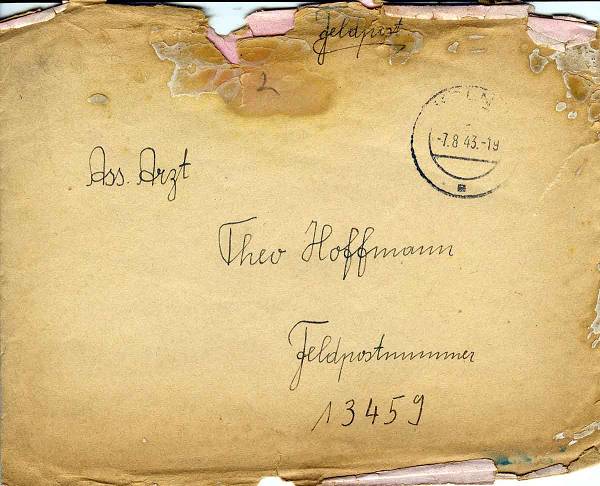 Feldpost
2
-7.8 43.-19
Ass. Arzt
Theo Hoffmann
Feldpostnummer
13459